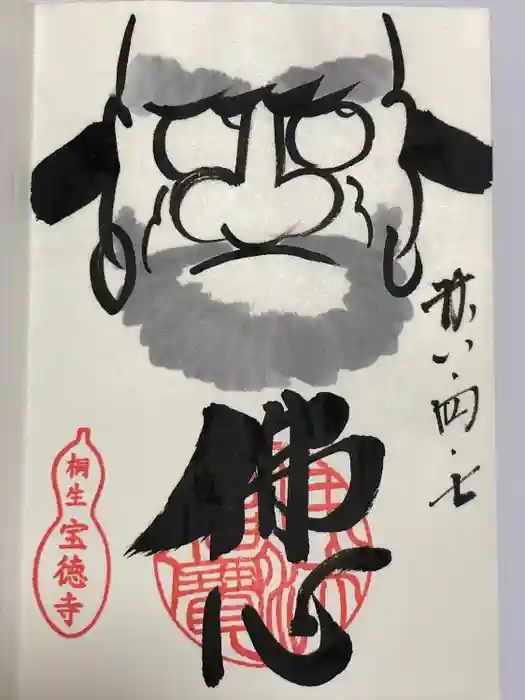 廿八.四.七
佛心
桐生
宝徳寺